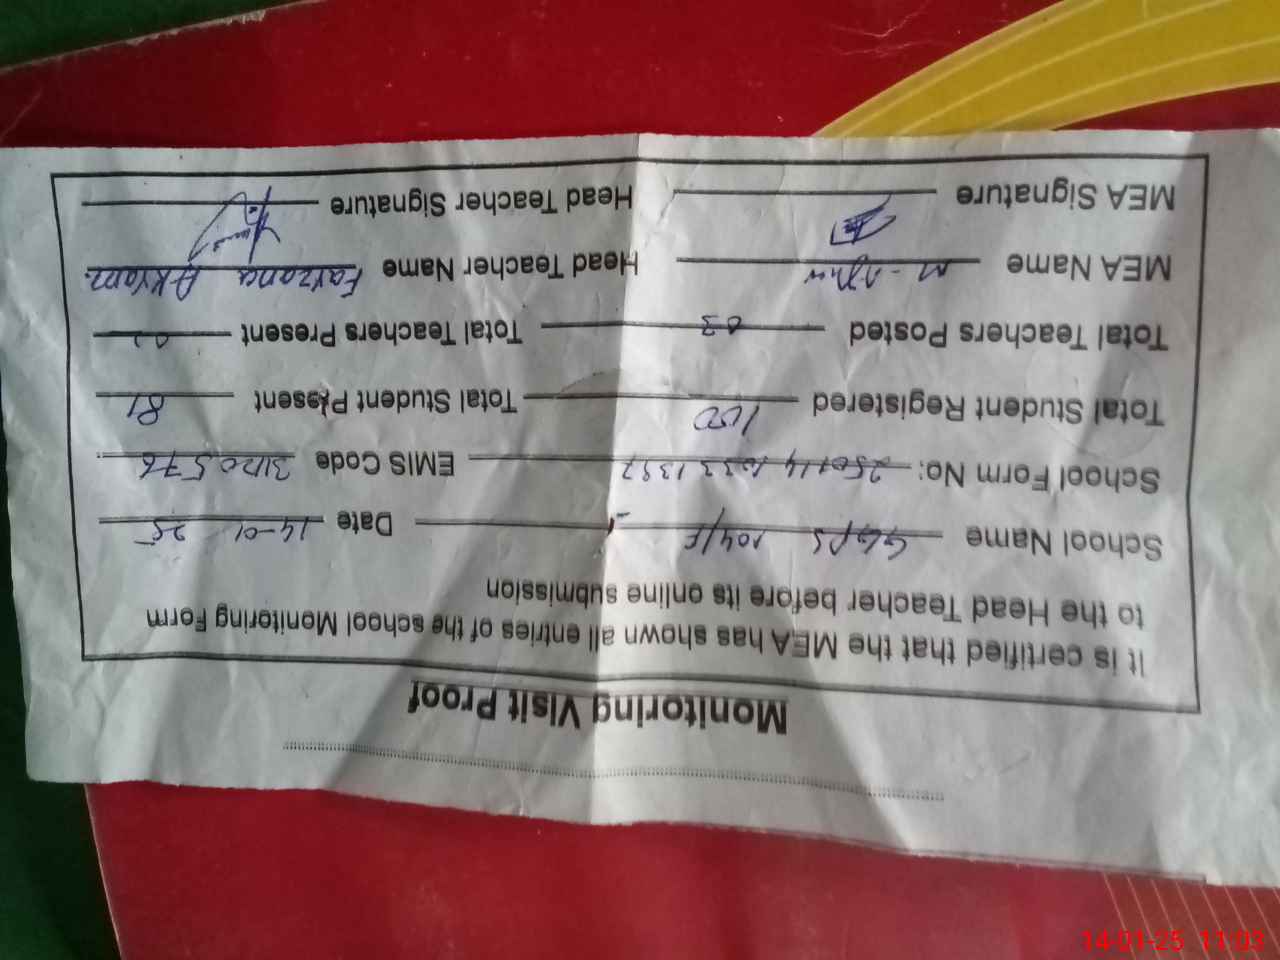 Monitoring Visit Proof
It is certified that the MEA has shown all entries of the school Monitoring Form
to the Head Teacher before its online submission
School Name GGPS 104/F Date 14-01 25
School Form No: EMIS Code 31120576
Total Student Registered 100 Total Student Present 81
Total Teachers Posted 03 Total Teachers Present 02
MEA Name Head Teacher Name Farzana Akram
MEA Signature Head Teacher Signature
14-01-25 11:03